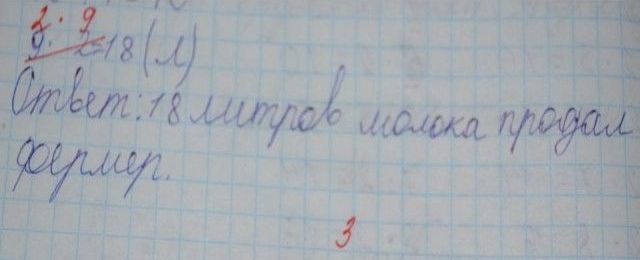 2 · 9
9 · 2=18(л)
Ответ: 18 литров молока продал
фермер.
3